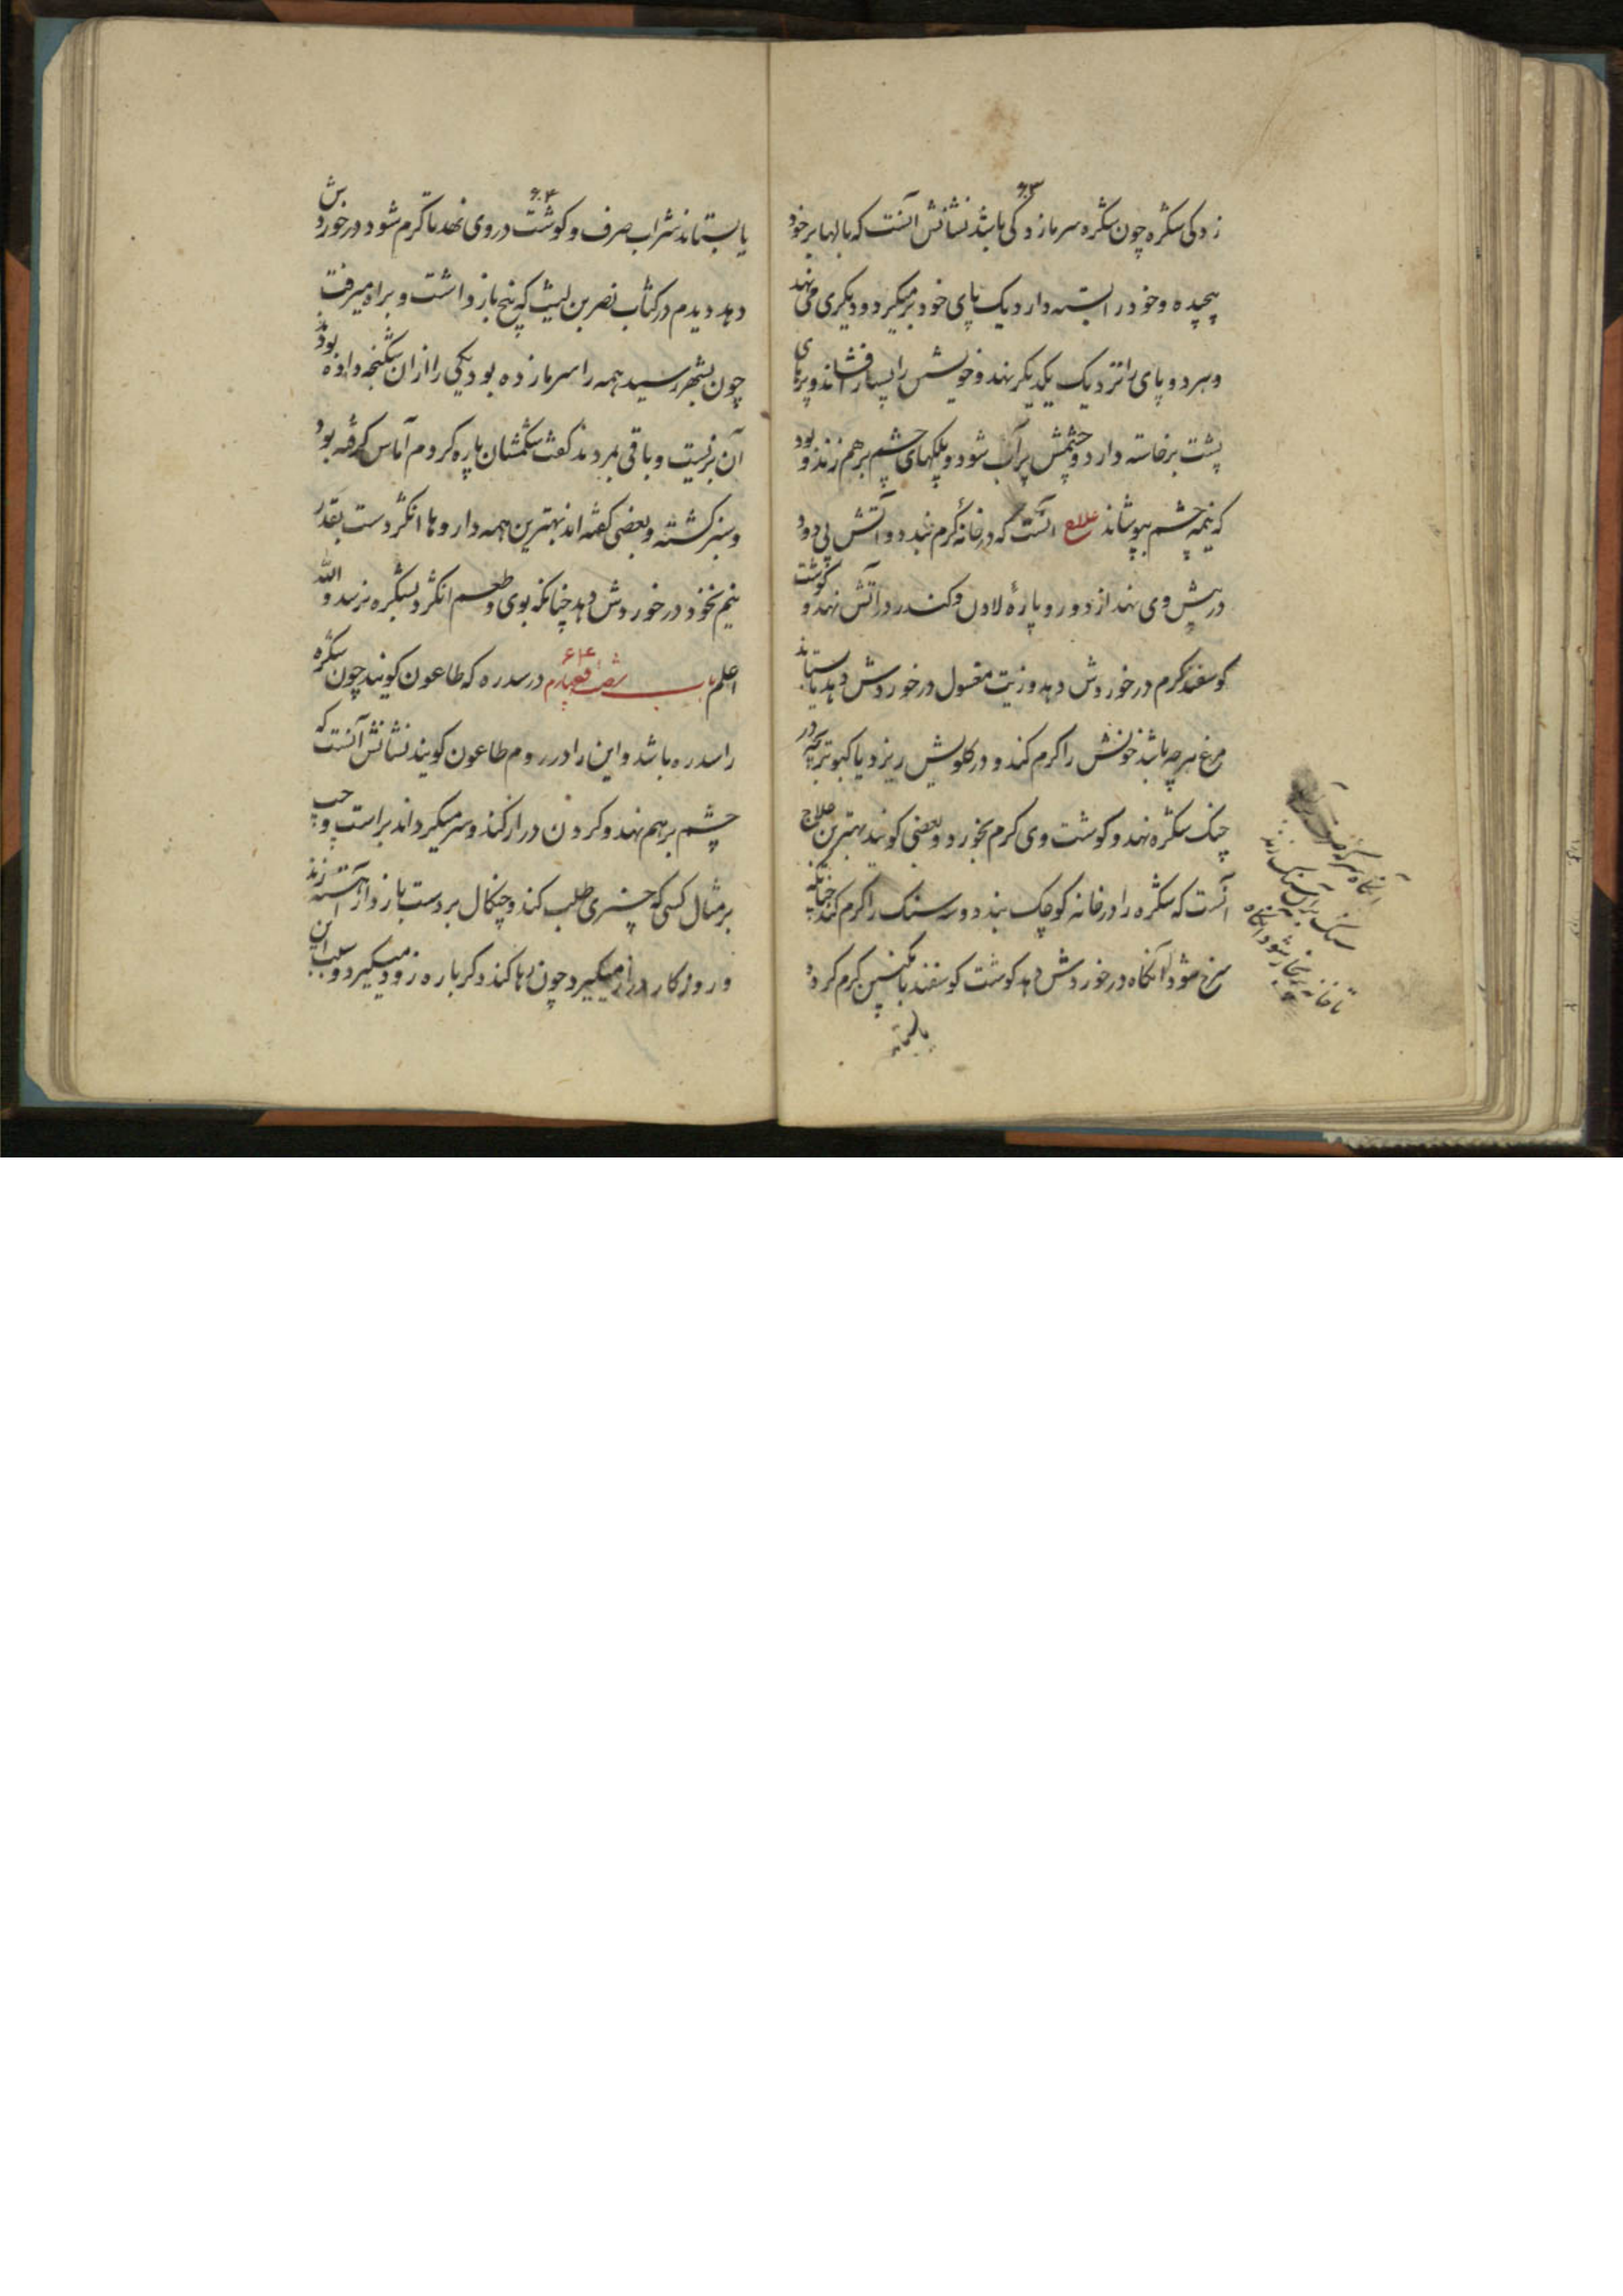 ۶۳
زدگی شکره چون شکره سرمازدگی باشد نشانش آنست که بالها برخود
پیچیده و خود را بسته دارد یک پای خود برمیکیرد و دیکری می نهد
و هر دو پای را نزدیک یکدیکر نهد و خویشتن را بسیار افشاند و پرهای
پشت برخاسته دارد و چشمش پرآب شود و پلکهای چشم برهم زند و بود
که نیمه چشم بپوشاند علاج آنست که در خانه کرم بندد و آتش بی دود
در پیش وی نهد از دور و پارهٔ لادن و کندر در آتش نهد و کوشت
کوسفند کرم در خوردش دهد و زیت مغسول در خوردش دهد یا بستاند
مرغ هرچه باشد خونش را کرم کند و در کلویش ریزد یا کبوتر بچه در
چنک شکره نهد و کوشت وی کرم بخورد و بعضی کویند بهترین علاج
آنست که شکره را در خانه کوچک بندد و سه سنک را کرم کند چنانکه
سرخ شود آنکاه در خوردش دهد کوشت کوسفند با انکبین کرم کرده
آنکاه سرکه
سنک بر آن سنک زند
تا خانه پر بخار شود آنکاه
یا بستاند
۶۴
یا بستاند شراب صرف و کوشت در وی نهد تا کرم شود در خوردش
دهد دیدم در کتاب نصر بن لیث که پنج باز داشت و براه میرفت
چون بشهر رسید همه را سرما زده بود یکی را از آن شکنجه داده بودند
آن بزیست و باقی بمردند کفت شکمشان پاره کردم آماس کرفته بود
و سبز کشته و بعضی کفته اند بهترین همه داروها انکژد است بقدر
نیم نخود در خوردش دهد چنانکه بوی و طعم انکژد بشکره نرسد والله
اعلم باب شصت و چهارم ۶۴ در سدره که طاعون کویند چون شکره
را سدره باشد و این را در روم طاعون کویند نشانش آنست که
چشم برهم نهد و کردن دراز کند و سر میکرداند براست و چپ
بر مثال کسی که چیزی طلب کند و چنکال بر دست بازدار آهسته زند
و روزکار دراز میکیرد چون رها کند دکر باره زود میکیرد و سبب این